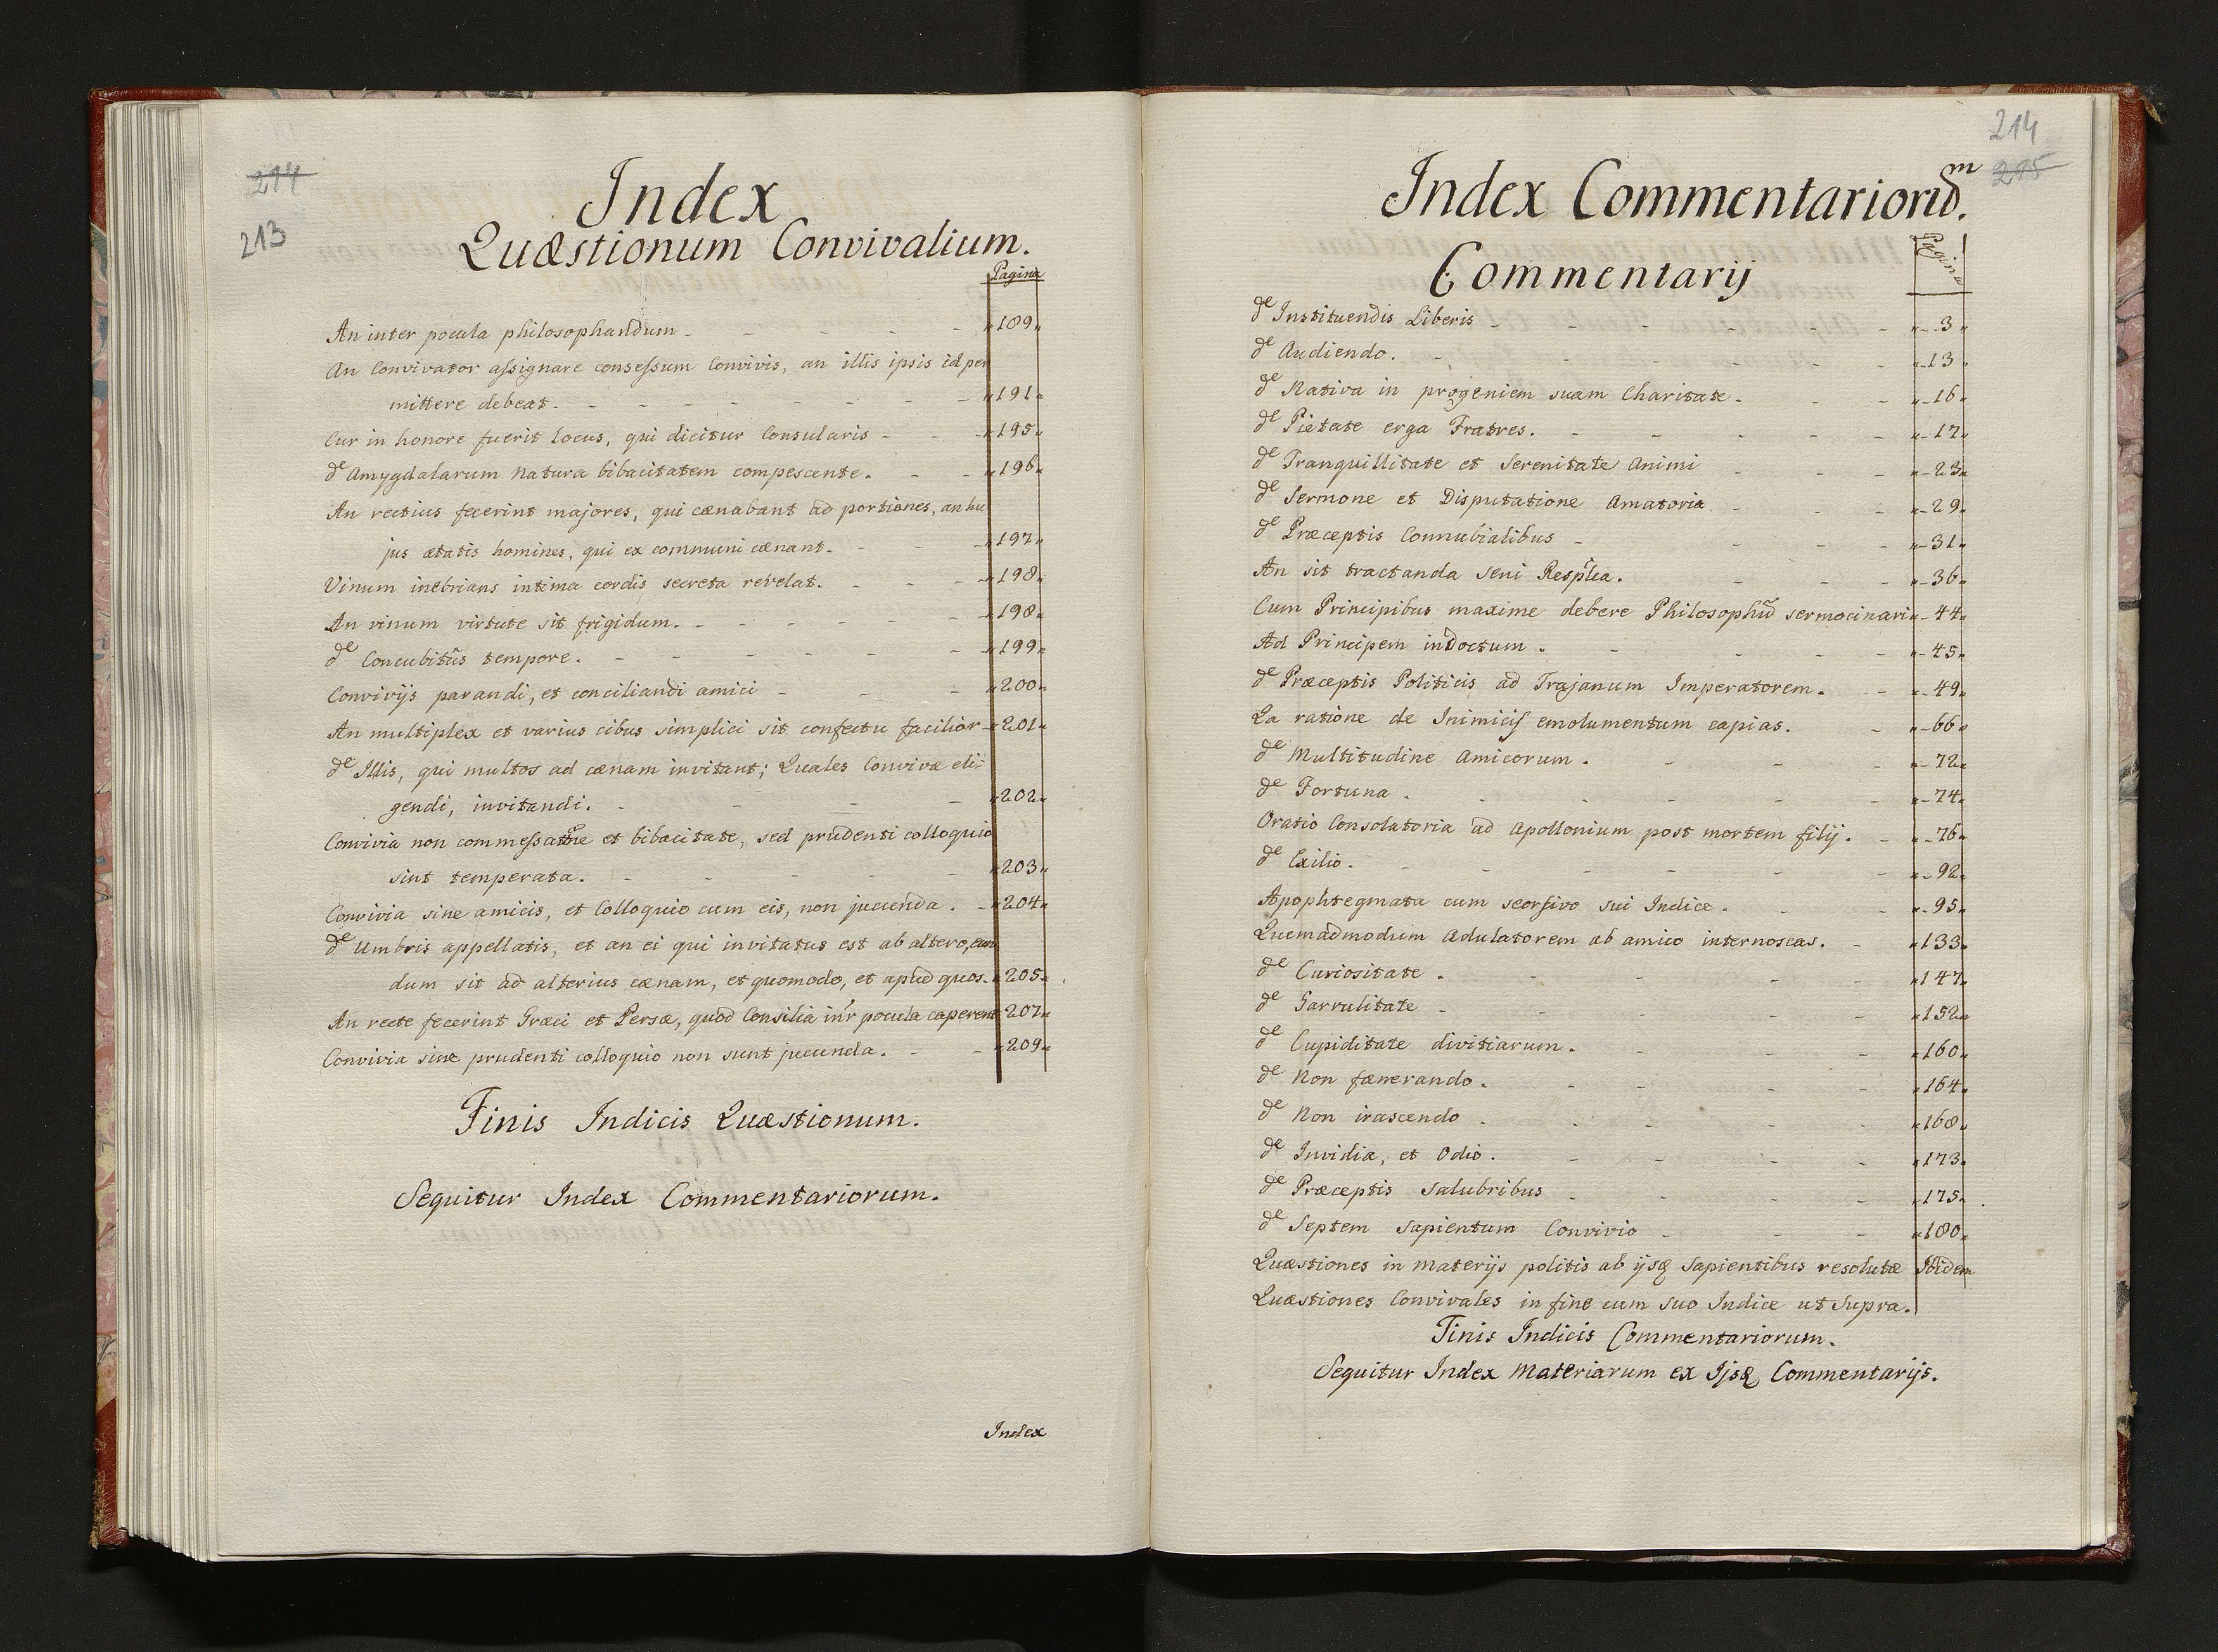 214
213
Index
Quæstionum Convivalium.
Pagina
An inter pocula philosophandum - - - - - „189„
An Convivator assignare consessum Convivis, an illis ipsis id per
mittere debeat. - - - - - - - „191„
Cur in honore fuerit locus, qui dicitur Consularis - - - „195„
de Amygdalarum Natura bibacitatem compescente. - - „196„
An rectius fecerint majores, qui cœnabant ad portiones, an hu
jus ætatis homines, qui ex communi cœnant. - - - „197„
Vinum inebrians intima cordis secreta revelat. - - - „198„
An vinum virtute sit frigidum. - - - - - „198„
de Concubitûs tempore. - - - - - „199„
Convivijs parandi, et conciliandi amici - - - „200„
An multiplex et varius cibus simplici sit confectu facilior - „201„
de Illis, qui multos ad cœnam invitant; Quales Convivæ eli-
gendi, invitandi. - - - - „202„
Convivia non commessatõne et bibacitate, sed prudenti colloquio
sint temperata. - - - - - „203„
Convivia sine amicis, et Colloquio cum eis, non jucunda. - „204„
de Umbris appellatis, et an ei qui invitatus est ab altero, eun
dum sit ad alterius cœnam, et quomodo, et apud quos - „205„
An recte fecerint Græci et Persæ, quod Consilia inr pocula caperent „207„
Convivia sine prudenti colloquio non sunt jucunda. - - „209„
Finis Indicis Quæstionum.
Sequitur Index Commentariorum.
Index
214
215
Index Commentariorum.
Commentarij
Pagina
de Instituendis Liberis - - - - - „- -3„
de Audiendo. - - - - - „-13„
de Nativa in progeniem suam Charitate - - - „-16„
de Pietate erga Fratres. - - - - - „-17„
de Tranquillitate et Serenitate Animi - - - „-23„
de Sermone et Disputatione Amatoria - - - „-29„
de Præceptis Connubialibus - - - - „-31„
An sit tractanda seni Resplica. - - - „-36„
Cum Principibus maxime debere Philosophũ sermocinari „-44„
Ad Principem indoctum . - - - - „-45„
de Præceptis Politicis ad Trajanum Imperatorem. - - „-49„
Qa ratione de Inimicis emolumentum capias. - „-66„
de Multitudine Amicorum . - - - „-72„
de Fortuna . - - - - - „-74„
Oratio Consolatoria ad Apollonium post mortem filij. - „-76„
de Exilio. - - - - - - „-92„
Apophtegmata cum seorsivo sui Indice. - - „-95„
Quemadmodum Adulatorem ab amico internoscas. - „133„
de Curiositate . - - - - „147„
de Garrulitate - - - - - „152„
de Cupiditate divitiarum. - - - - „160„
de Non fœnerando. - - - - „164„
de Non irascendo - - - - - „168„
de Invidia, et Odio. - - - - „173„
de Præceptis Salubribus - - - - „175„
de Septem Sapientum Convivio - - - „180„
Quæstiones in materijs politis ab ijsq Sapientibus resolutæ Ibidem
Quæstiones Convivales in fine cum suo Indice ut Supra.
Finis Indicis Commentariorum.
Sequitur Index Materiarum ex Ijsq Commentarijs.